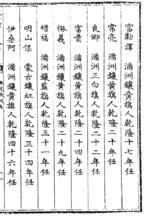 富爾渾 滿洲鑲黃旗人乾隆十七年任
常亮 滿洲鑲黃旗人乾隆二十年任
良卿 滿洲正白旗人乾隆二十二年任
富貴 滿洲鑲黃旗人乾隆二十四年任
恆義 滿洲鑲黃旗人乾隆二十九年任
增福 滿洲鑲藍旗人乾隆三十一年任
明山保 蒙古鑲紅旗人乾隆三十四年任
伊桑阿 滿洲鑲黃旗人乾隆四十六年任